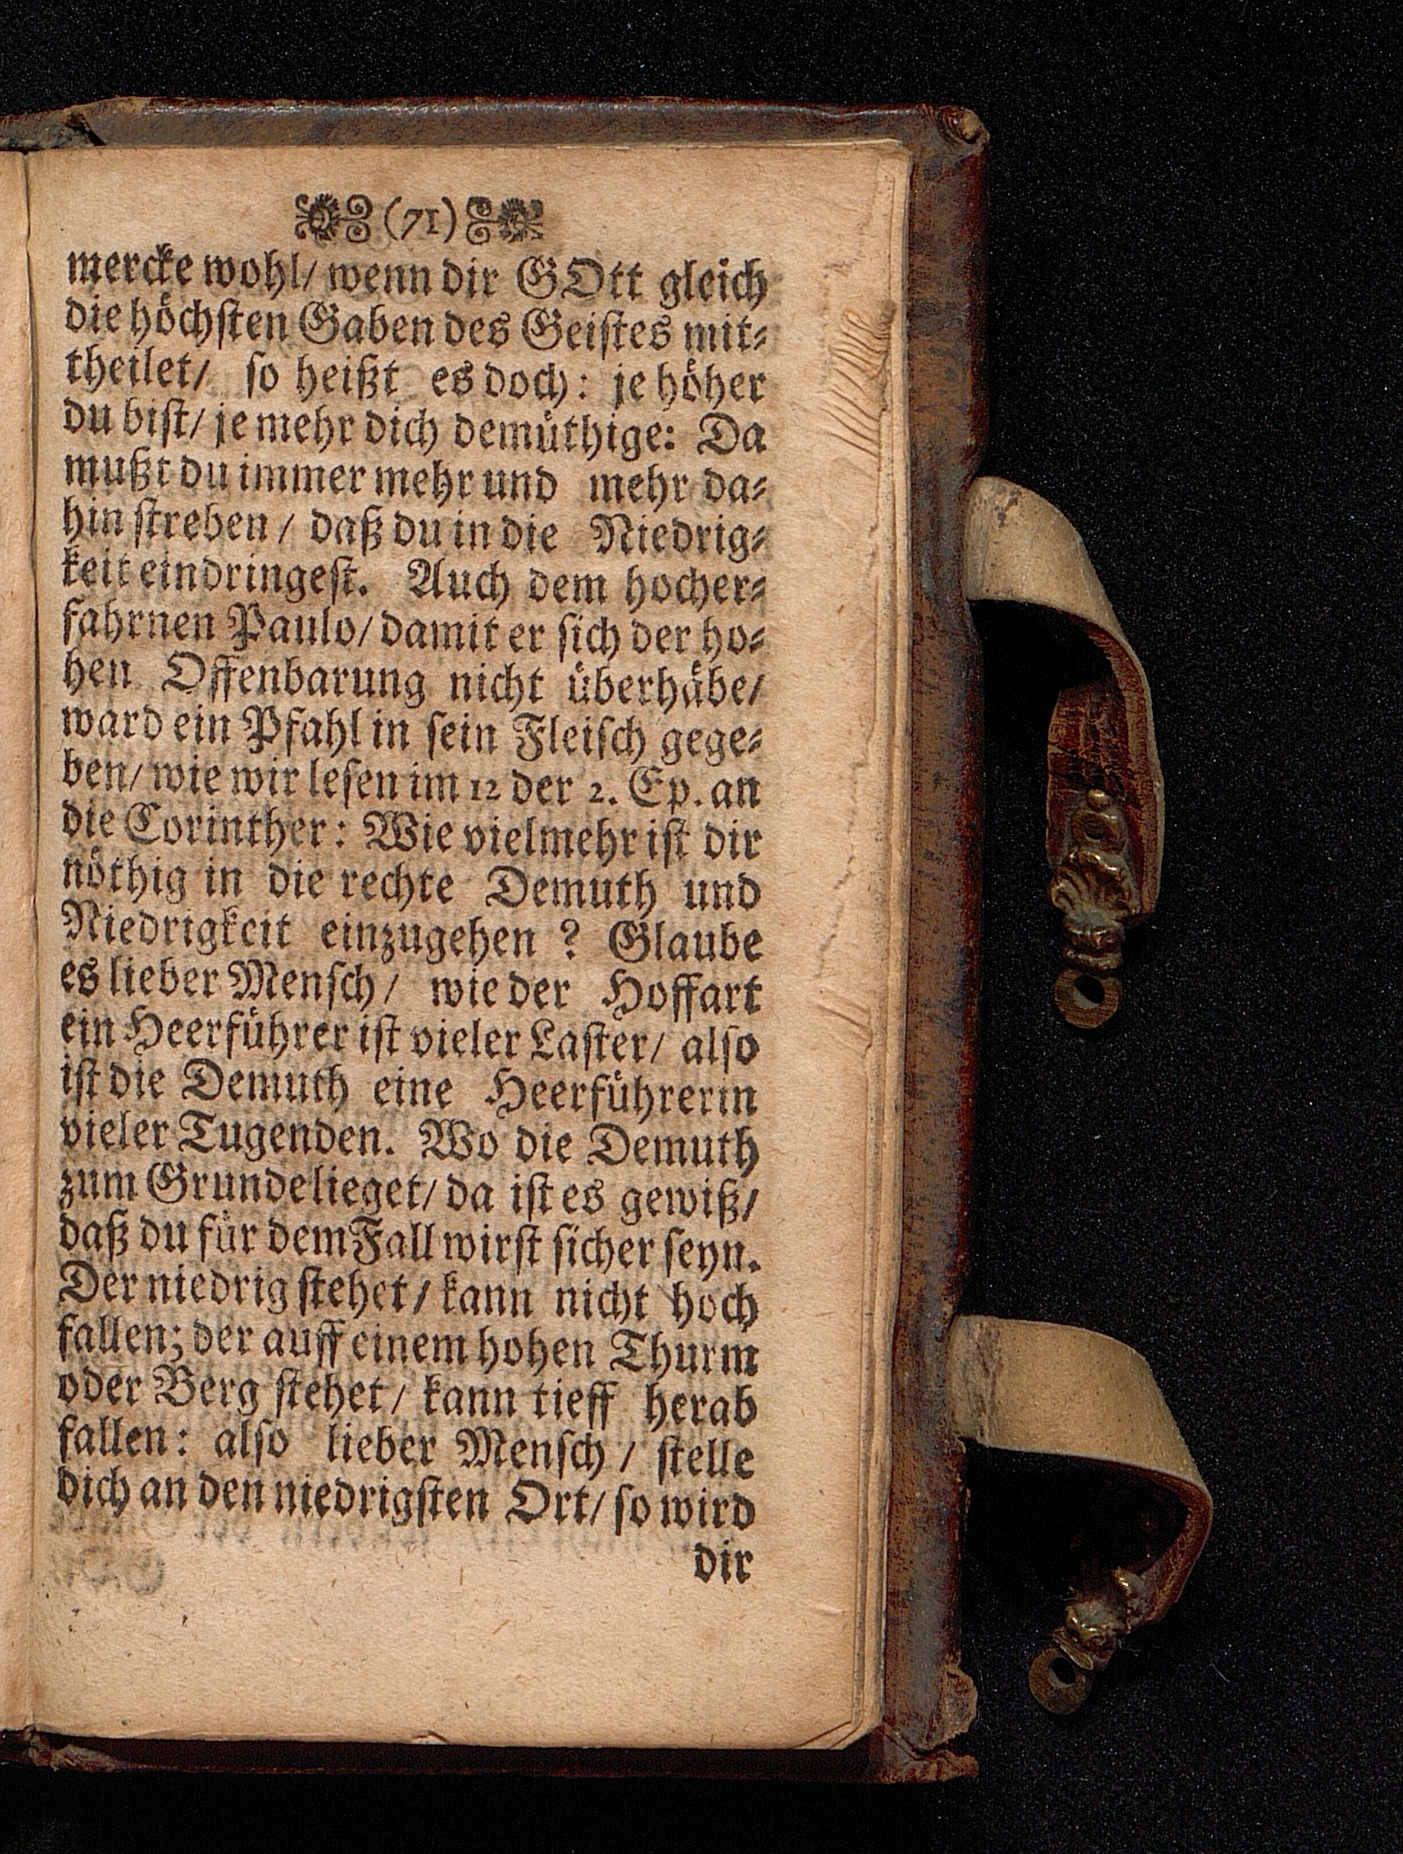 (71)
mercke wohl/ wenn dir GOtt gleich
die höchſten Gaben des Geiſtes mit⸗
theilet/ ſo heißt es doch: je höher
du biſt/ je mehr dich demüthige: Da
mußt du immer mehr und mehr da⸗
hin ſtreben/ daß du in die Niedrig⸗
keit eindringeſt. Auch dem hocher⸗
fahrnen Paulo/ damit er ſich der ho⸗
hen Offenbarung nicht überhäbe/
ward ein Pfahl in ſein Fleiſch gege⸗
ben/ wie wir leſen im 12 der 2. Ep. an
die Corinther: Wie vielmehr iſt dir
nöthig in die rechte Demuth und
Niedrigkeit einzugehen? Glaube
es lieber Menſch/ wie der Hoffart
ein Heerführer iſt vieler Laſter/ alſo
iſt die Demuth eine Heerführerin
vieler Tugenden. Wo die Demuth
zum Grunde lieget/ da iſt es gewiß/
daß du für dem Fall wirſt ſicher ſeyn.
Der niedrig ſtehet/ kann nicht hoch
fallen; der auff einem hohen Thurm
oder Berg ſtehet/ kann tieff herab
fallen: alſo lieber Menſch/ ſtelle
dich an den niedrigſten Ort/ ſo wird
dir